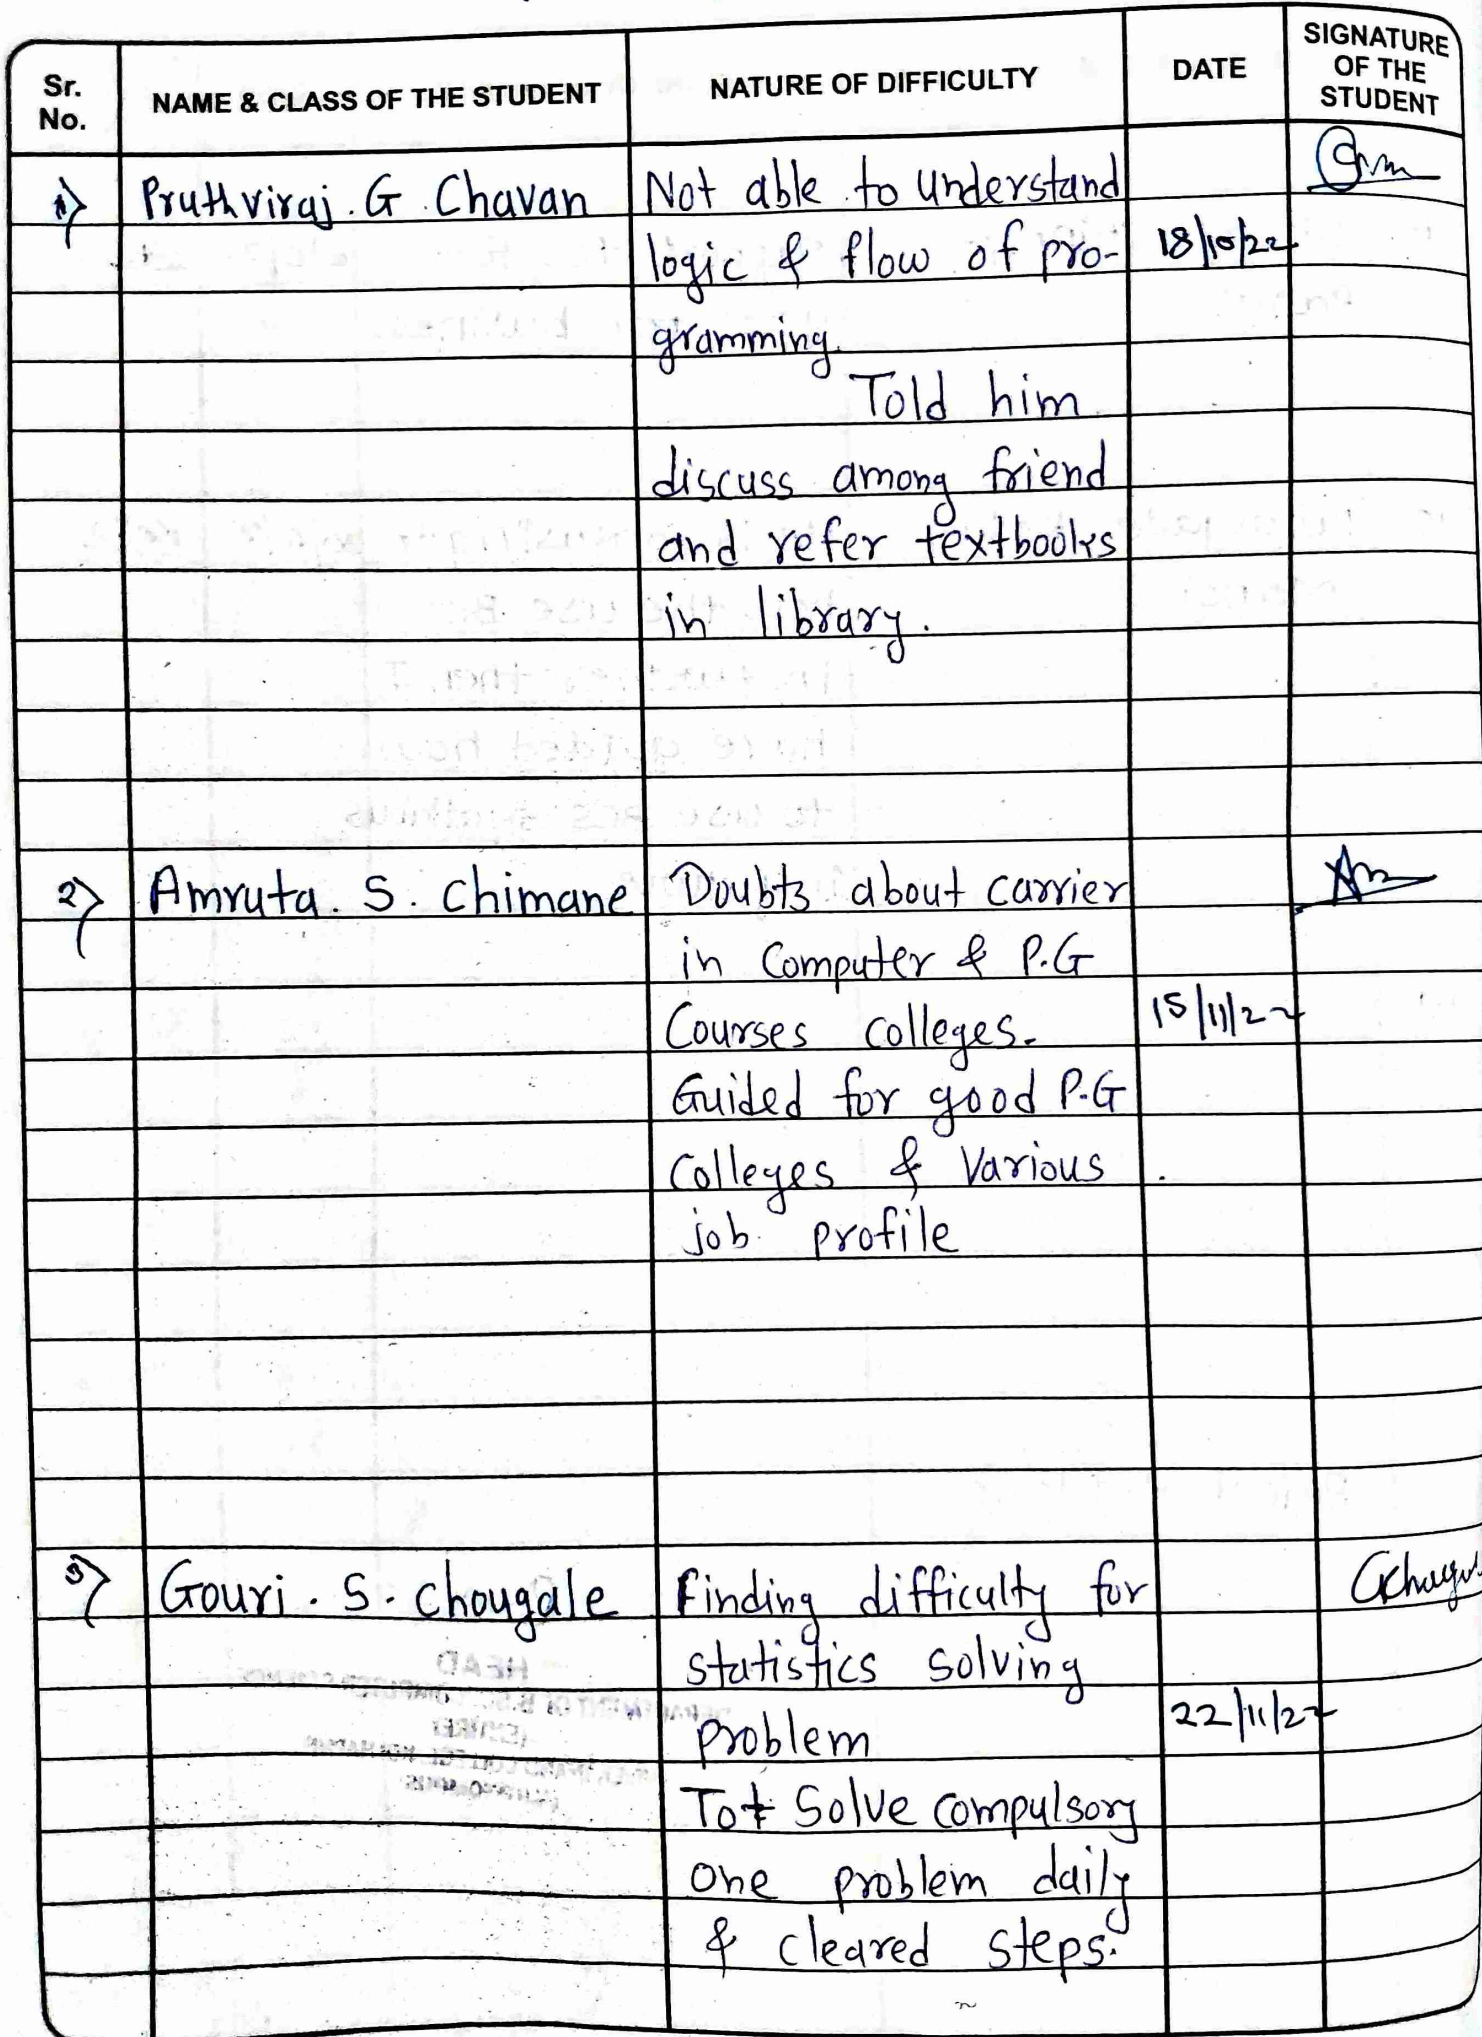 Sr. No.
NAME & CLASS OF THE STUDENT
NATURE OF DIFFICULTY
DATE
SIGNATURE OF THE STUDENT
1) Pruthviraj. G. Chavan Not able to understand
logic & flow of pro- 18/10/22
gramming.
Told him
discuss among friend
and refer textbooks
in library.
2) Amruta. S. Chimane Doubts about carrier
in Computer & P.G
Courses colleges. 15/11/22
Guided for good P.G
Colleges & Various
job profile
3) Gouri. S. Chougale Finding difficulty for
statistics solving
problem 22/11/22
Tot Solve compulsory
one problem daily
& cleared steps.